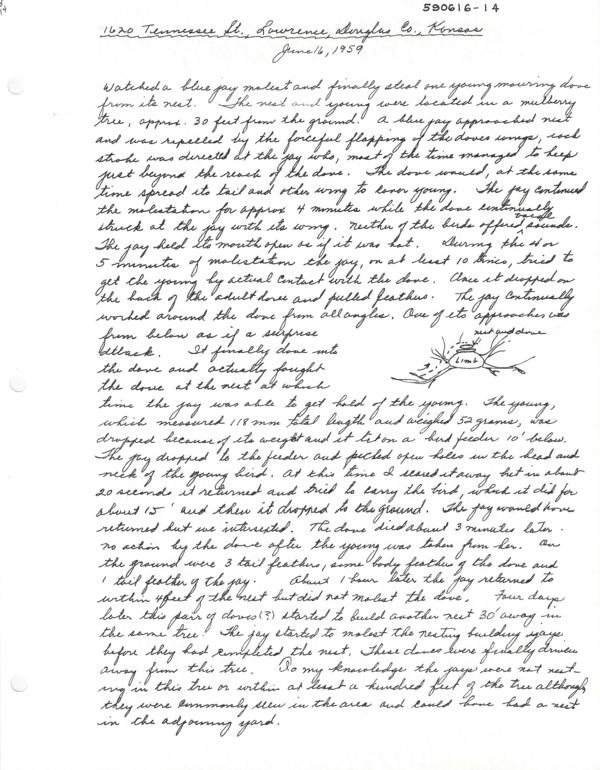 590616-14
1620 Tennessee St., Lawrence, Douglas Co., Kansas
June 16, 1959
Watched a blue jay molest and finally steal one young mourning dove
from its nest. The nest and young were located in a mulberry
tree, approx. 30 feet from the ground. A blue jay approached nest
and was repelled by the forceful flapping of the doves wings, each
stroke was directed at the jay who, most of the time managed to keep
just beyond the reach of the dove. The dove would, at the same
time spread its tail and other wing to cover young. The jay continued
the molestation for approx 4 minutes while the dove continually
struck at the jay with its wing. Neither of the birds offered vocal sounds.
The jay held its mouth open as if it was hot. During the 4 or
5 minutes of molestation the jay, on at least 10 times, tried to
get the young by actual contact with the dove. Once it dropped on
the back of the adult dove and pulled feathers. The jay continually
worked around the dove from all angles. One of its approaches was
from below as if a surprise
attack. It finally dove into
the dove and actually fought
the dove at the nest at which
nest and dove
Limb
time the jay was able to get hold of the young. The young,
which measured 118 mm total length and weighed 52 grams, was
dropped because of its weight and it lit on a bird feeder 10' below.
The jay dropped to the feeder and picked open holes in the head and
neck of the young bird. At this time I scared it away but in about
20 seconds it returned and tried to carry the bird, which it did for
about 15' and then it dropped to the ground. The jay would have
returned but we interested. The dove died about 3 minutes later.
no action by the dove after the young was taken from her. On
the ground were 3 tail feathers, some body feathers of the dove and
1 tail feather of the jay. About 1 hour later the jay returned to
within 4 feet of the nest but did not molest the dove. Four days
later this pair of doves (?) started to build another nest 30' away in
the same tree. The jay started to molest the nesting building
before they had completed the nest. These doves were finally driven
away from this tree. To my knowledge the jays were not nest-
ing in this tree or within at least a hundred feet of the tree although
they were commonly seen in the area and could have had a nest
in the adjoining yard.